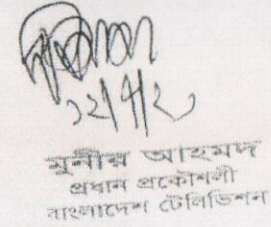 ১২/৭/২০
মুনীর আহমদ
প্রধান প্রকৌশলী
বাংলাদেশ টেলিভিশন